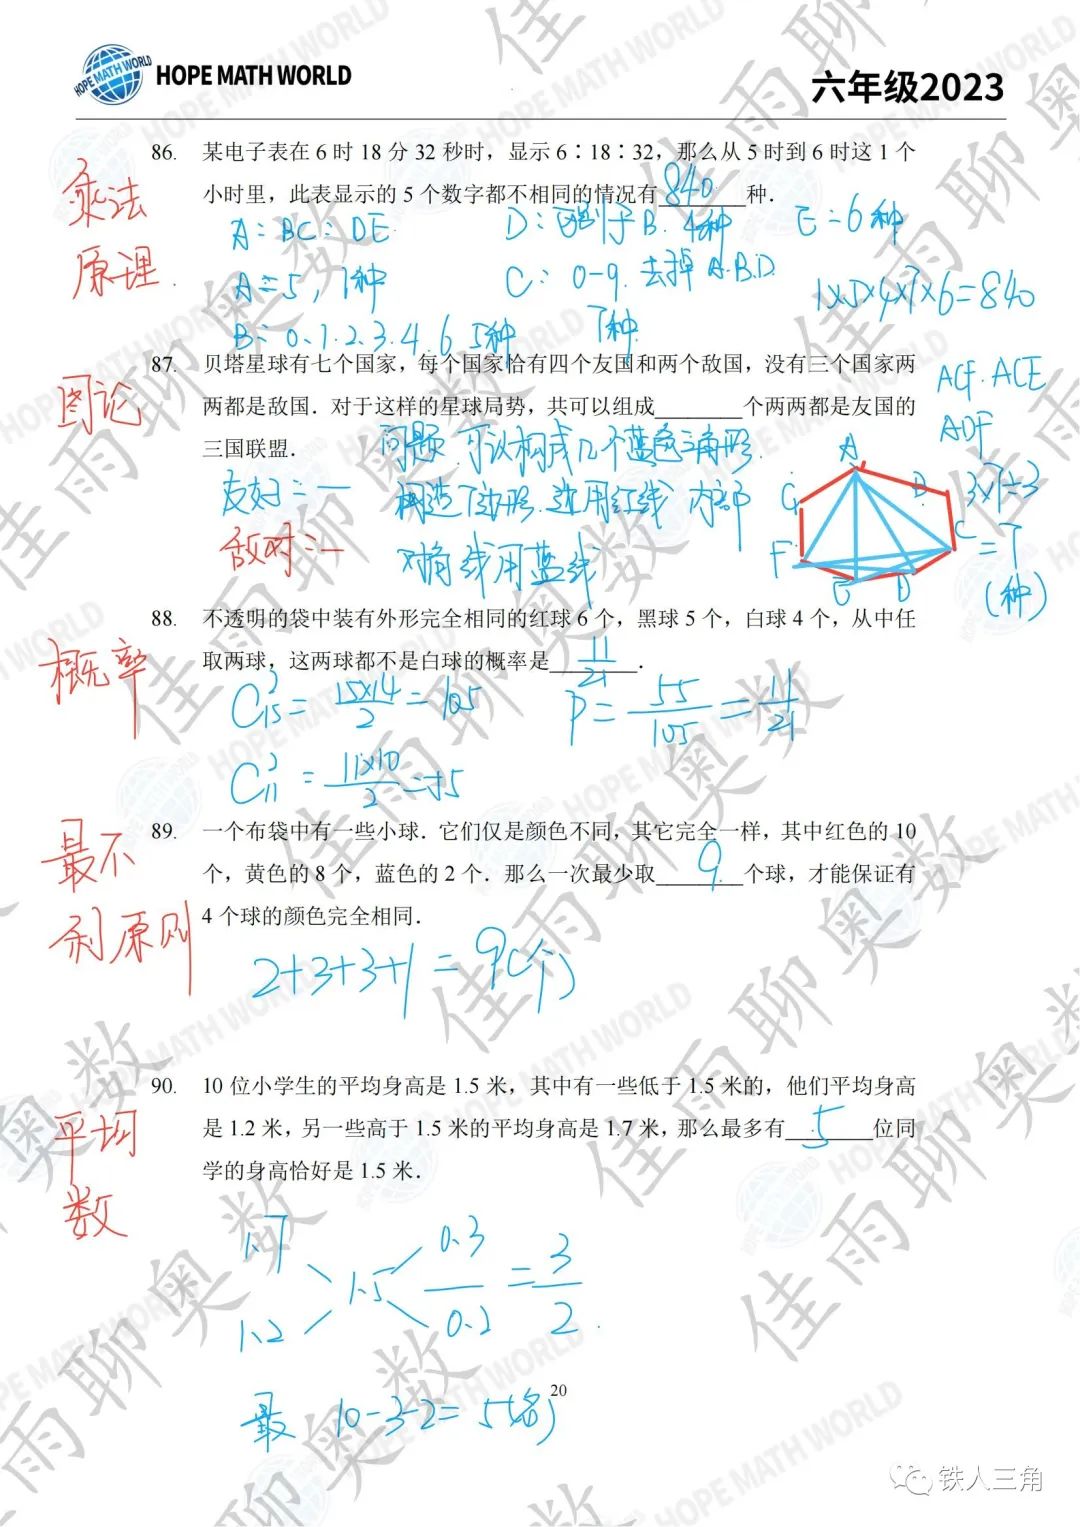 HOPE MATH WORLD
六年级2023
86. 某电子表在 6 时 18 分 32 秒时，显示 6∶18∶32，那么从 5 时到 6 时这 1 个
小时里，此表显示的 5 个数字都不相同的情况有 840 种．
乘法
原理
A：BC：DE
D：可别于B. 4种
E=6种
A=5，1种
C：0-9 去掉A.B.D
7种
1×5×4×7×6=840
B：0.1.2.3.4. 5种
87. 贝塔星球有七个国家，每个国家恰有四个友国和两个敌国，没有三个国家两
两都是敌国．对于这样的星球局势，共可以组成________个两两都是友国的
三国联盟．
图论
问题 可以构成几个蓝色三角形.
友好：—
构造7边形.边用红线 内部
敌对：—
对角线用蓝线
ACF.ACE
ADF
3×7÷3
=7
(种)
A
B
C
D
E
F
G
88. 不透明的袋中装有外形完全相同的红球 6 个，黑球 5 个，白球 4 个，从中任
取两球，这两球都不是白球的概率是 11/21 ．
概率
C²₁₅ = 15×14/2 = 105
P = 55/105 = 11/21
C²₁₁ = 11×10/2 = 55
89. 一个布袋中有一些小球．它们仅是颜色不同，其它完全一样，其中红色的 10
个，黄色的 8 个，蓝色的 2 个．那么一次最少取 9 个球，才能保证有
4 个球的颜色完全相同．
最不
利原则
2+3+3+1=9(个)
90. 10 位小学生的平均身高是 1.5 米，其中有一些低于 1.5 米的，他们平均身高
是 1.2 米，另一些高于 1.5 米的平均身高是 1.7 米，那么最多有 5 位同
学的身高恰好是 1.5 米．
平均
数
1.7
1.2
1.5
0.3/0.2 = 3/2
最 10-3-2=5(名)
20
铁人三角
佳雨聊奥数